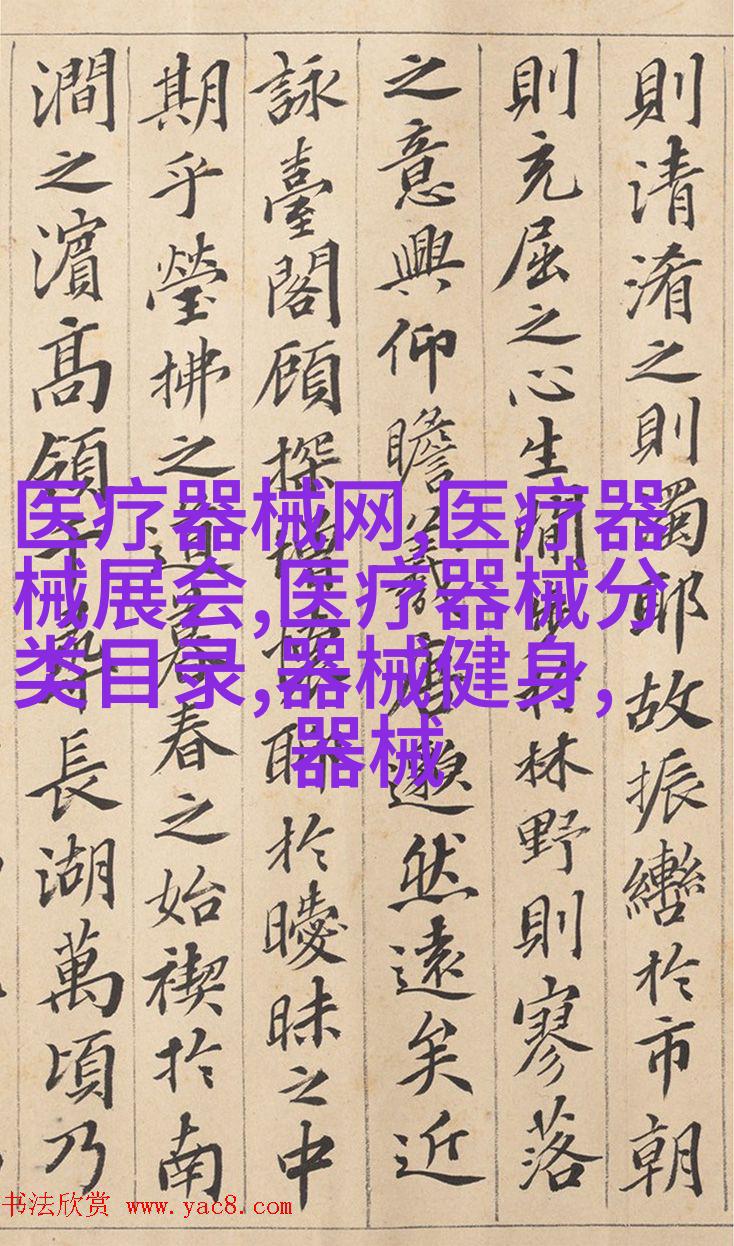 則清淆之則濁耶故振轡於市朝
則充屈之心生閒步於林野則寥落
之意興仰瞻羲唐邈然遠矣近
詠臺閣顧探增懷聊於曖昧之中
期乎瑩拂之道暮春之始禊於南
澗之濱高領千尋長湖萬頃乃
医疗器械网,医疗器
械展会,医疗器械分
类目录,器械健身,
器械
书法欣赏 www.yac8.com